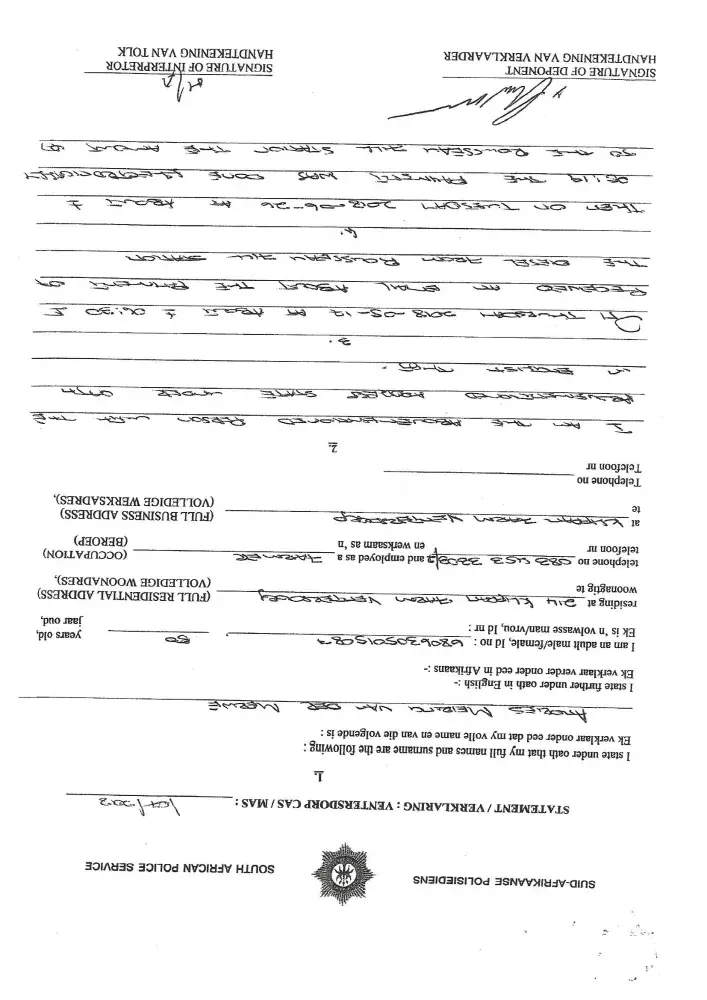 SUID-AFRIKAANSE POLISIEDIENS SOUTH AFRICAN POLICE SERVICE
STATEMENT / VERKLARING : VENTERSDORP CAS / MAS :
1.
I state under oath that my full names and surname are the following :
Ek verklaar onder eed dat my volle name en van die volgende is :
ANDRIES VAN DER MERWE
I state further under oath in English :-
Ek verklaar verder onder eed in Afrikaans :-
I am an adult male/female, Id no : years old,
Ek is 'n volwasse man/vrou, Id nr : 50 jaar oud,
residing at 214 FARM VENTERSDORP (FULL RESIDENTIAL ADDRESS)
woonagtig te (VOLLEDIGE WOONADRES),
telephone no and employed as a FARMER (OCCUPATION)
telefoon nr en werksaam as 'n (BEROEP)
at FARM VENTERSDORP (FULL BUSINESS ADDRESS)
te (VOLLEDIGE WERKSADRES),
Telephone no
Telefoon nr
2.
I AM THE PERSON WITH THE
ADDRESS STATE UNDER OATH
IN ENGLISH THAT.
3.
ON THURSDAY 2018-05-17 AT ABOUT ± 06:30 I
RECEIVED AN EMAIL ABOUT THE PAYMENT OF
THE DIESEL FROM ROUSSEAU FILL STATION
4.
THEN ON TUESDAY 2018-06-26 AT ABOUT ±
06:19 THE PAYMENT WAS DONE ELECTRONICALLY
TO THE ROUSSEAU FILL STATION THE AMOUNT OF
SIGNATURE OF DEPONENT SIGNATURE OF INTERPRETOR
HANDTEKENING VAN VERKLAARDER HANDTEKENING VAN TOLK